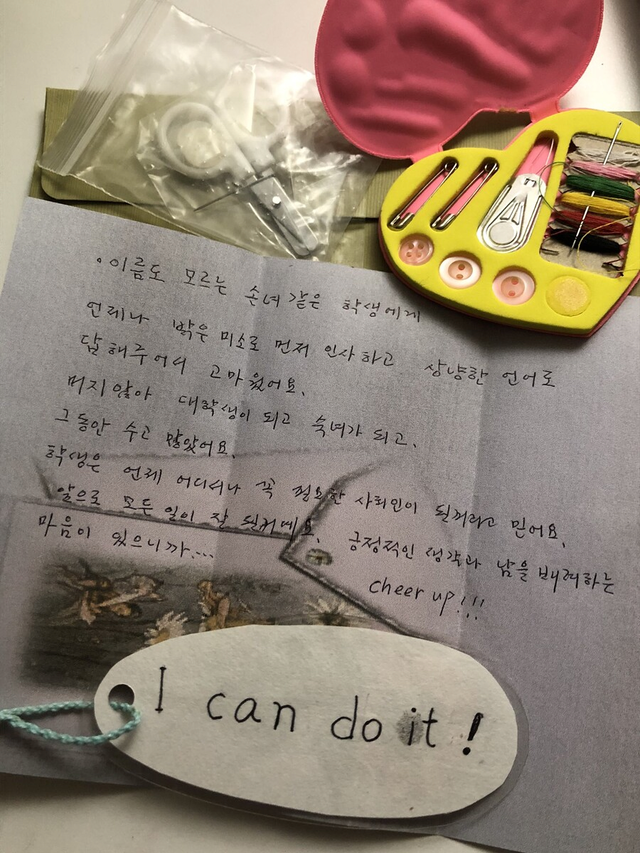 • 이름도 모르는 손녀 같은 학생에게
언제나 밝은 미소로 먼저 인사하고 상냥한 언어로
답해주어서 고마웠어요.
머지않아 대학생이 되고 숙녀가 되고.
그동안 수고 많았어요.
학생은 언제 어디서나 꼭 필요한 사회인이 될꺼라고 믿어요.
앞으로 모든 일이 잘 될꺼예요. 긍정적인 생각과 남을 배려하는
마음이 있으니까...
cheer up!!!
I can do it!